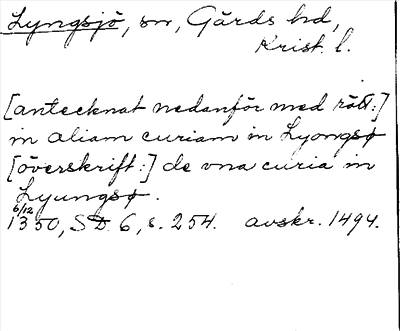 Lyngsjö, sn, Gärds hd,
Krist. l.
[antecknat nedanför med rött:]
in aliam curiam in Lyongsø
[överskrift:] de vna curia in
Lyungsø.
6/12
1350, SD 6, s. 254. avskr. 1494.